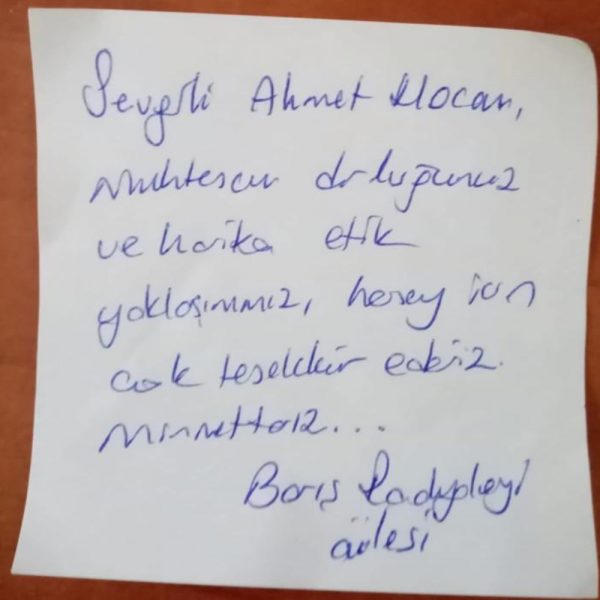 Sevgili Ahmet Hocam,
muhteşem dr luğunuz
ve harika etik
yaklaşımınız, herşey için
çok teşekkür ederiz.
Minnettarız...
Barış
ailesi